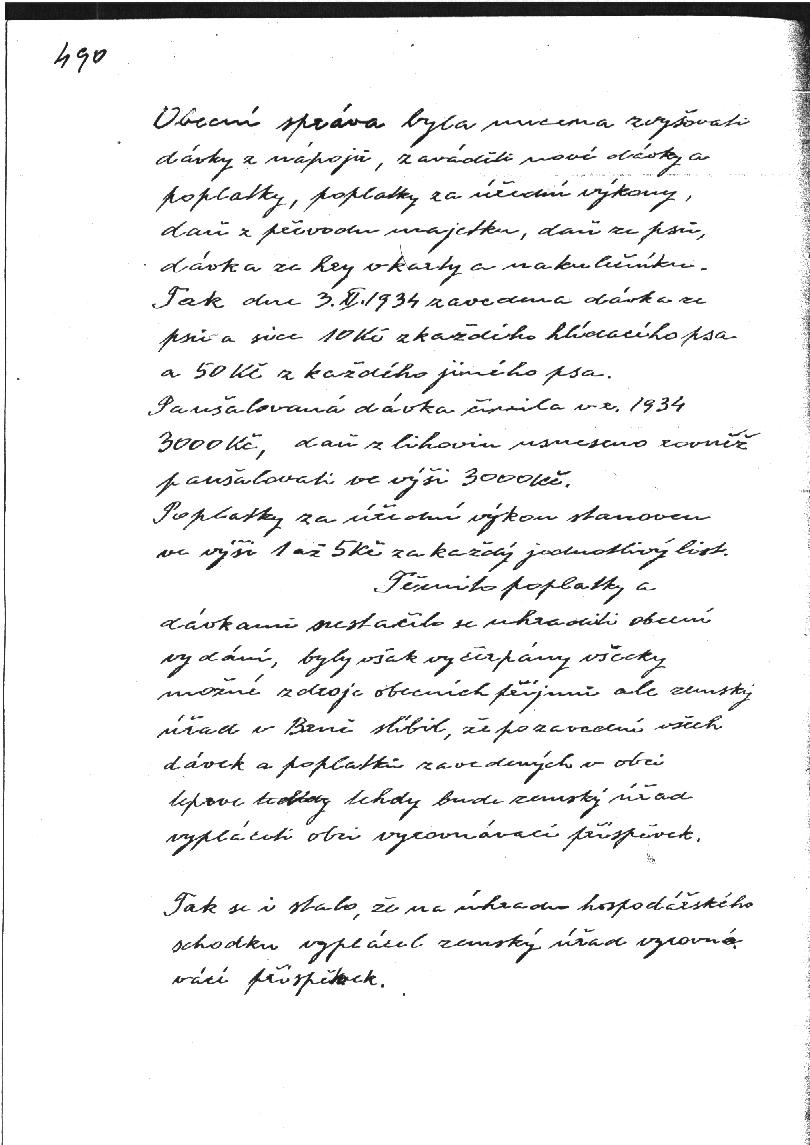 490
Obecní správa byla nucena zvyšovati
dávky z nápojů, zaváděti nové dávky a
poplatky, poplatky za úřední výkony,
daň z převodu majetku, daň ze psů,
dávka za hry v karty a na kulečníku.
Tak dne 3.II.1934 zavedena dávka ze
psů a sice 10 Kč z každého hlídacího psa
a 50 Kč z každého jiného psa.
Paušalovaná dávka činila v r. 1934
3000 Kč, daň z lihovin usneseno rovněž
paušalovati ve výši 3000 Kč.
Poplatky za úřední výkon stanoven
ve výši 1 až 5 Kč za každý jednotlivý list.
Těmito poplatky a
dávkami nestačilo se uhraditi obecní
vydání, byly však vyčerpány všecky
možné zdroje obecních příjmů ale zemský
úřad v Brně slíbil, že po zavedení všech
dávek a poplatků zavedených v obci
teprve tehdy bude zemský úřad
vypláceti obci vyrovnávací příspěvek.
Tak se i stalo, že na úhradu hospodářského
schodku vyplácel zemský úřad vyrovná-
vací příspěvek.